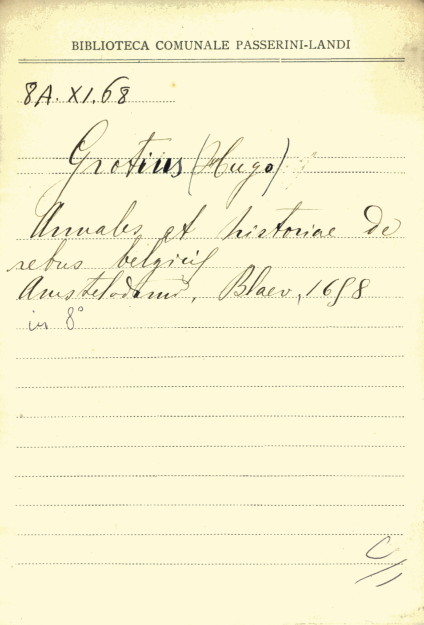 BIBLIOTECA COMUNALE PASSERINI-LANDI
8A. XI. 68
Grotius (Hugo)
Annales et historiae de
rebus belgicis
Amstelodami, Blaev, 1658
in 8°